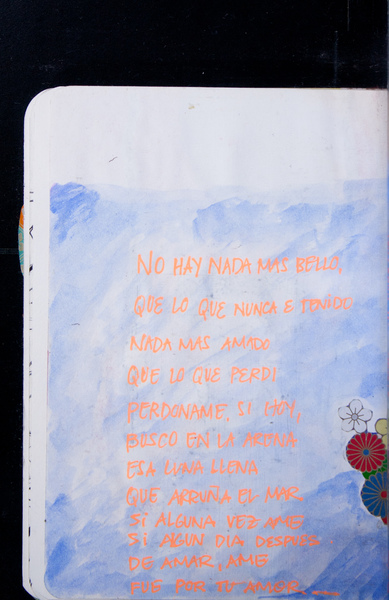 NO HAY NADA MAS BELLO,
QUE LO QUE NUNCA E TENIDO
NADA MAS AMADO
QUE LO QUE PERDI
PERDONAME, SI HOY,
BUSCO EN LA ARENA
ESA LUNA LLENA
QUE ARRUÑA EL MAR
SI ALGUNA VEZ AME
SI ALGUN DIA DESPUES
DE AMAR, AME
FUE POR TU AMOR.